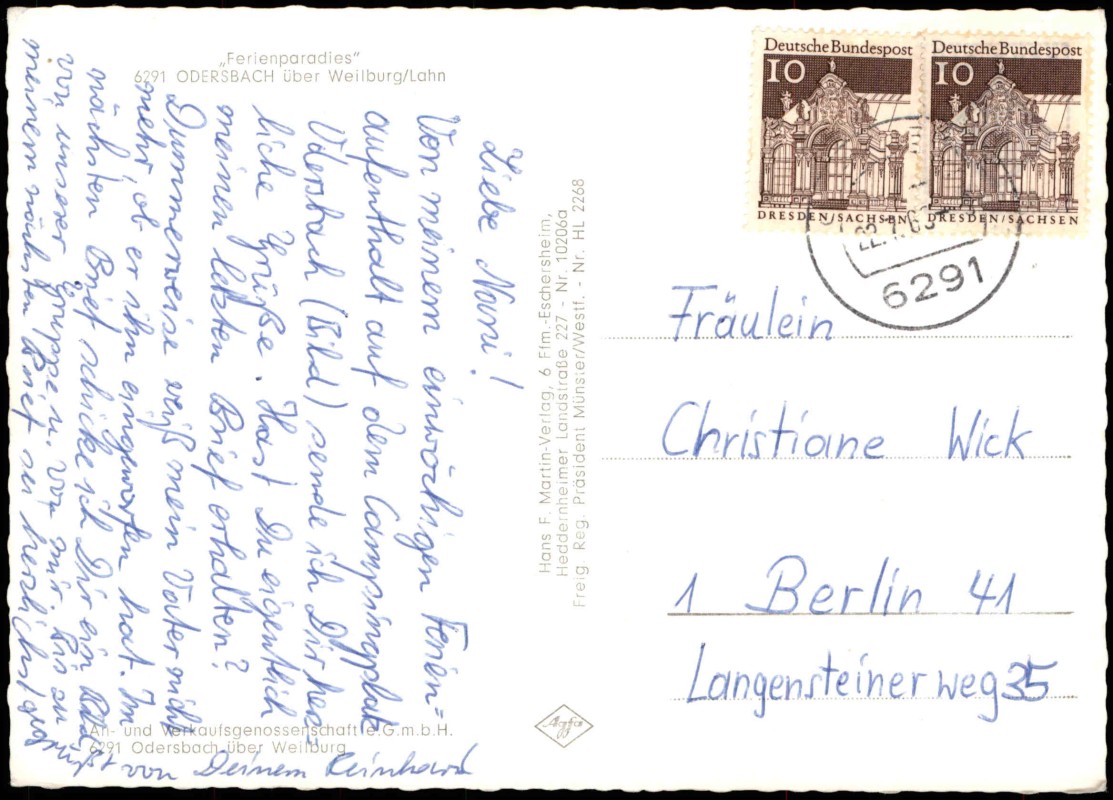 „Ferienparadies"
6291 ODERSBACH über Weilburg/Lahn
Liebe Nani!
Von meinem einwöchigen Ferien=
aufenthalt auf dem Campingplatz
Odersbach (Bild) sende ich Dir herz
liche Grüße. Hast Du eigentlich
meinen letzten Brief erhalten?
Dummerweise weiß mein Vater nicht
mehr, ob er ihn eingeworfen hat. Im
nächsten Brief schicke ich Dir ein Bild
von unserer Gruppe u. von mir. Bis zu
meinem nächsten Brief sei herzlichst gegrüßt
von Deinem Reinhard
An- und Verkaufsgenossenschaft e.G.m.b.H.
6291 Odersbach über Weilburg
Hans F. Martin-Verlag, 6 Ffm.-Eschersheim,
Heddernheimer Landstraße 227 - Nr. 10206a
Freig. Reg. Präsident Münster/Westf. - Nr. HL 2268
Agfa
Deutsche Bundespost
10
DRESDEN/SACHSEN
Deutsche Bundespost
10
DRESDEN/SACHSEN
6291
Fräulein
Christiane Wick
1 Berlin 41
Langensteinerweg 35